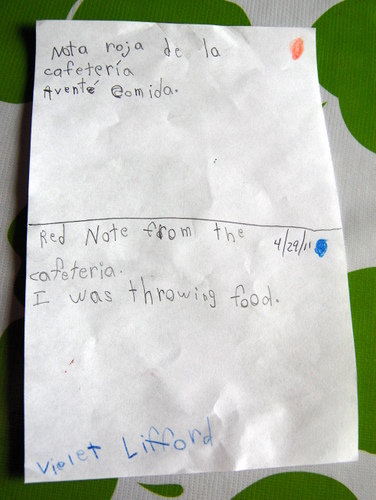 Nota roja de la
cafetería
Aventé comida.
Red Note from the
4/29/11
cafeteria.
I was throwing food.
Violet Lifford